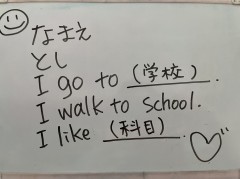 なまえ
とし
I go to (学校).
I walk to school.
I like (科目).